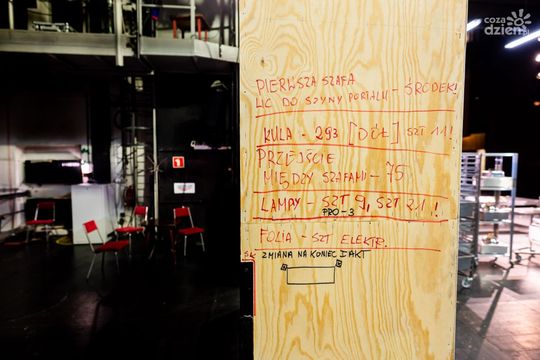 coza
dzień.pl
PIERWSZA SZAFA
LIC DO SZYNY PORTALU - ŚRODEK!
KULA - 293 [DÓŁ] SZT 11!
PRZEJŚCIE
MIĘDZY SZAFAMI - 75
LAMPY - SZT 9, SZT 21!
PRO-3
FOLIA - SZT ELEKTR.
ZMIANA NA KONIEC I AKT